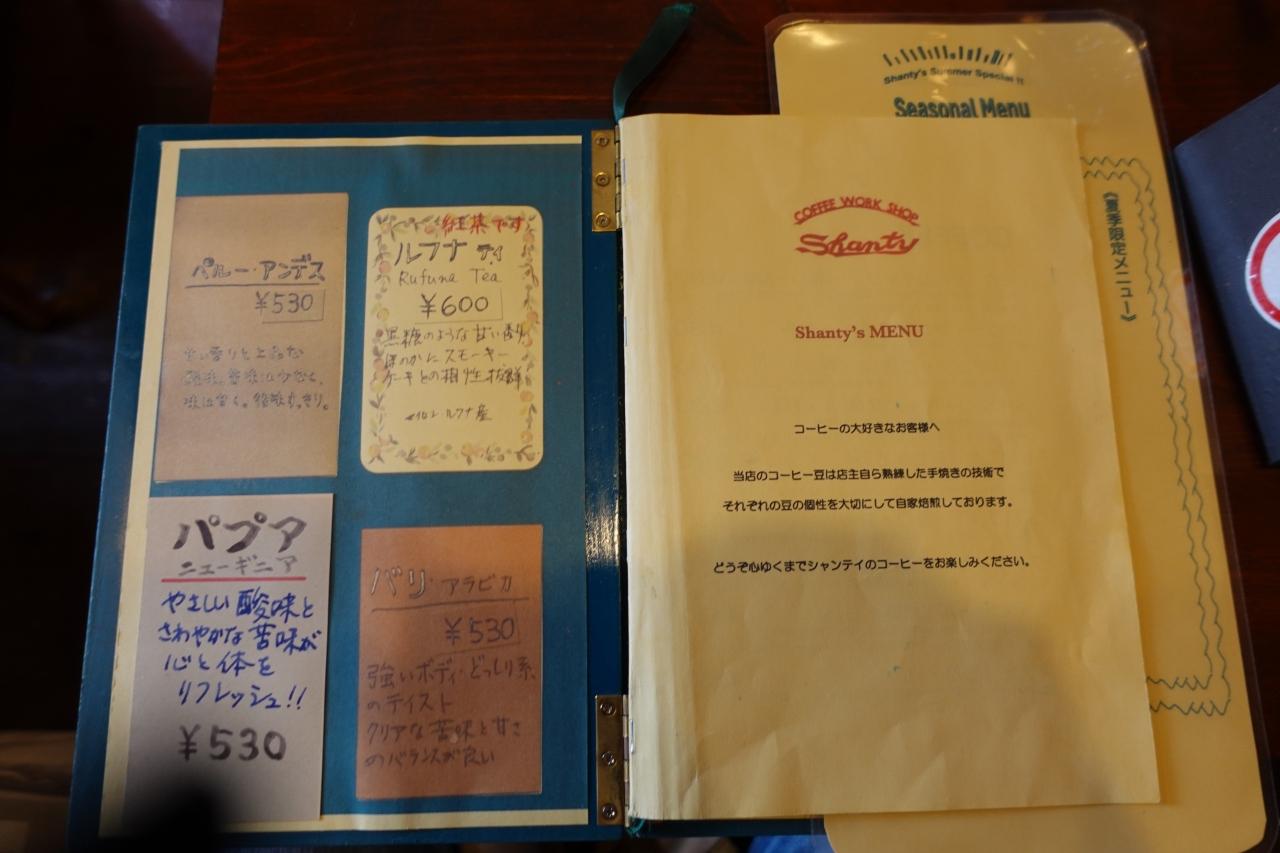 パルー・アンデス
¥530
味は甘く。後味すっきり。
紅茶です
ルフナ ティ
Rufuna Tea
¥600
黒糖のような甘い香り
ほのかにスモーキー
ケーキとの相性抜群
ルフナ産
パプア
ニューギニア
やさしい酸味と
さわやかな苦味が
心と体を
リフレッシュ!!
¥530
バリ アラビカ
¥530
強いボディ・どっしり系
のテイスト
クリアな苦味と甘さ
のバランスが良い
COFFEE WORK SHOP
Shanty
Shanty's MENU
コーヒーの大好きなお客様へ
当店のコーヒー豆は店主自ら熟練した手焼きの技術で
それぞれの豆の個性を大切にして自家焙煎しております。
どうぞ心ゆくまでシャンテイのコーヒーをお楽しみください。
Shanty's Summer Special !!
Seasonal Menu
《夏季限定メニュー》